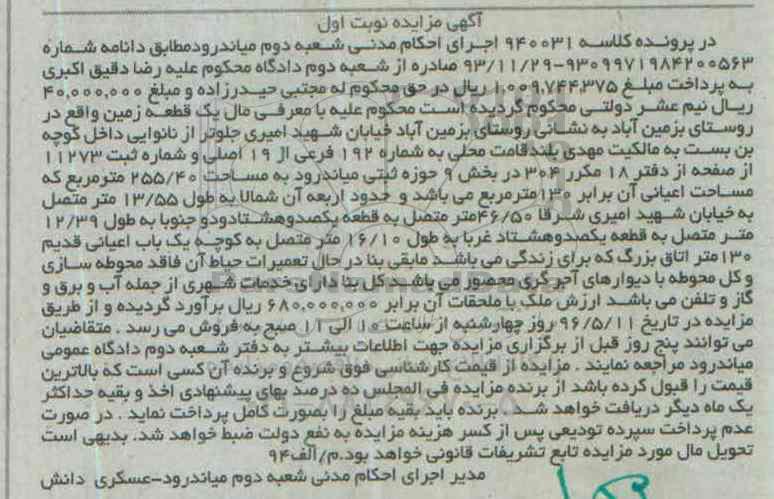 آگهی مزایده نوبت اول
در پرونده کلاسه ۹۴۰۰۳۱ اجرای احکام مدنی شعبه دوم میاندرود مطابق دادنامه شماره
۹۳۰۹۹۷۱۹۸۴۲۰۰۵۶۳-۹۳/۱۱/۲۹ صادره از شعبه دوم دادگاه محکوم علیه رضا دقیق اکبری
به پرداخت مبلغ ۱,۰۰۹,۷۴۴,۳۷۵ ریال در حق محکوم له مجتبی حیدرزاده و مبلغ ۴۰,۰۰۰,۰۰۰
ریال نیم عشر دولتی محکوم گردیده است محکوم علیه با معرفی مال یک قطعه زمین واقع در
روستای بزمین آباد به نشانی روستای بزمین آباد خیابان شهید امیری جلوتر از نانوایی داخل کوچه
بن بست به مالکیت مهدی بلندقامت محلی به شماره ۱۹۲ فرعی از ۱۹ اصلی و شماره ثبت ۱۱۲۷۳
از صفحه از دفتر ۱۸ مکرر ۳۰۴ در بخش ۹ حوزه ثبتی میاندرود به مساحت ۲۵۵/۴۰ مترمربع که
مساحت اعیانی آن برابر ۱۳۰ مترمربع می باشد و حدود اربعه آن شمالا به طول ۱۳/۵۵ متر متصل
به خیابان شهید امیری شرقا ۴۶/۵۰ متر متصل به قطعه یکصدوهشتادودو جنوبا به طول ۱۲/۳۹
متر متصل به قطعه یکصدوهشتاد غربا به طول ۱۶/۱۰ متر متصل به کوچه یک باب اعیانی قدیم
۱۳۰ متر اتاق بزرگ که برای زندگی می باشد مابقی بنا در حال تعمیرات حیاط آن فاقد محوطه سازی
و کل محوطه با دیوارهای آجر گری محصور می باشد کل بنا دارای خدمات شهری از جمله آب و برق و
گاز و تلفن می باشد ارزش ملک با ملحقات آن برابر ۶۸۰,۰۰۰,۰۰۰ ریال برآورد گردیده و از طریق
مزایده در تاریخ ۹۶/۵/۱۱ روز چهارشنبه از ساعت ۱۰ الی ۱۱ صبح به فروش می رسد . متقاضیان
می توانند پنج روز قبل از برگزاری مزایده جهت اطلاعات بیشتر به دفتر شعبه دوم دادگاه عمومی
میاندرود مراجعه نمایند . مزایده از قیمت کارشناسی فوق شروع و برنده آن کسی است که بالاترین
قیمت را قبول کرده باشد از برنده مزایده فی المجلس ده درصد بهای پیشنهادی اخذ و بقیه حداکثر
یک ماه دیگر دریافت خواهد شد . برنده باید بقیه مبلغ را بصورت کامل پرداخت نماید . در صورت
عدم پرداخت سپرده تودیعی پس از کسر هزینه مزایده به نفع دولت ضبط خواهد شد. بدیهی است
تحویل مال مورد مزایده تابع تشریفات قانونی خواهد بود.م/الف۹۴
مدیر اجرای احکام مدنی شعبه دوم میاندرود-عسکری دانش